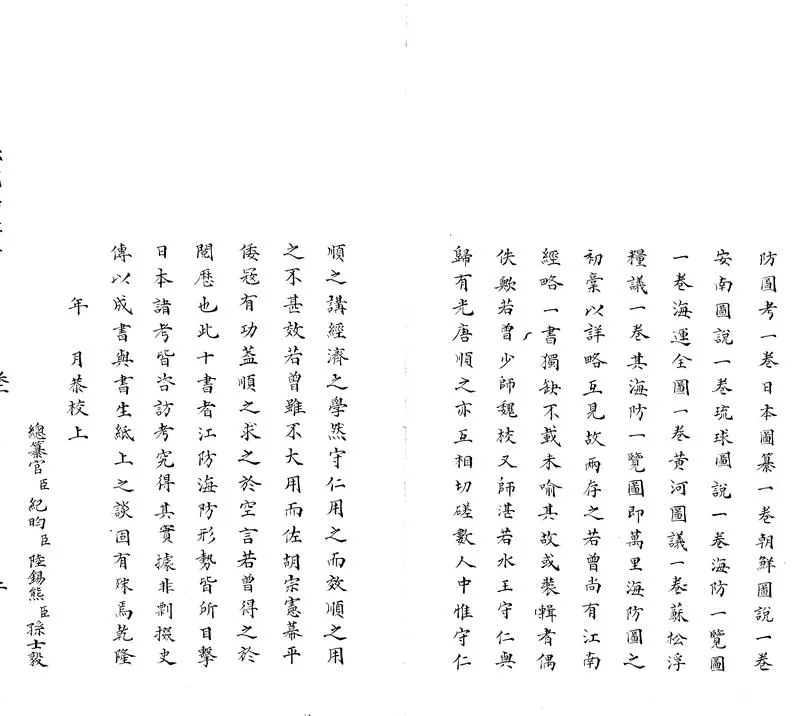 防圖考一卷日本圖纂一卷朝鮮圖說一卷
安南圖說一卷琉球圖說一卷海防一覽圖
一卷海運全圖一卷黄河圖議一卷蘇松浮
糧議一卷其海防一覽圖即萬里海防圖之
初稾以詳略互見故兩存之若曾尚有江南
經略一書獨缺不載未喻其故或裝輯者偶
佚歟若曾少師魏校又師湛若水王守仁與
歸有光唐順之亦互相切磋數人中惟守仁
順之講經濟之學然守仁用之而效順之用
之不甚效若曾雖不大用而佐胡宗憲幕平
倭冦有功葢順之求之於空言若曾得之於
閱歴也此十書者江防海防形勢皆所目擊
日本諸考皆咨訪考究得其實據非剽掇史
傳以成書與書生紙上之談固有殊焉乾隆
年 月恭校上
總纂官臣紀昀臣陸錫熊臣孫士毅